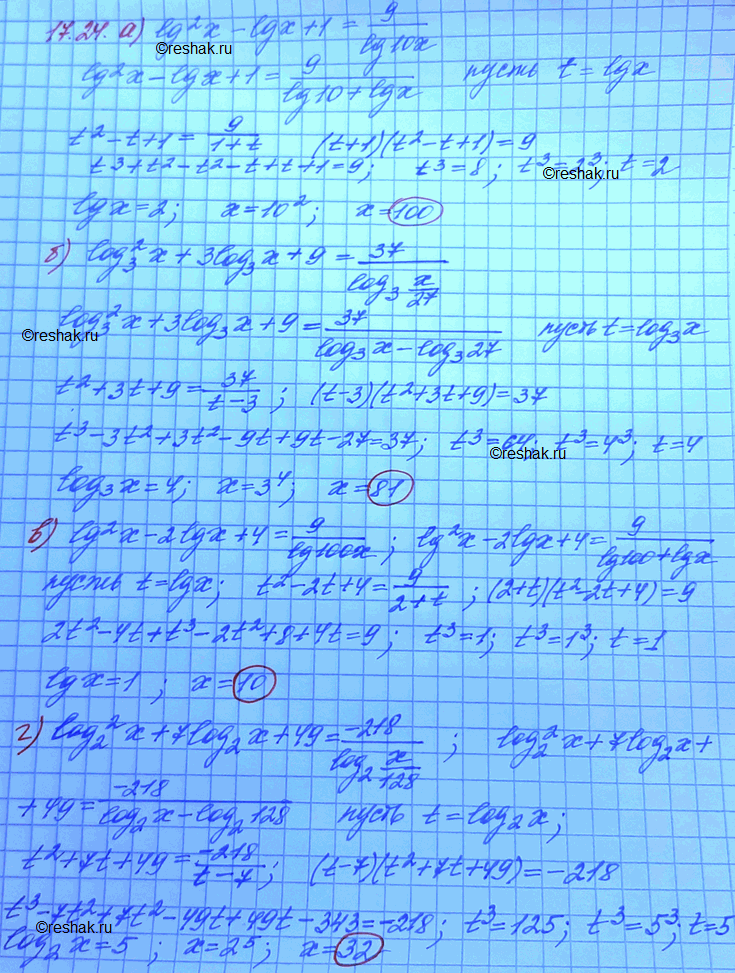 17.24. а) lg²x - lgx + 1 = 9/lg10x
©reshak.ru
lg²x - lgx + 1 = 9/(lg10 + lgx) пусть t = lgx
t² - t + 1 = 9/(1 + t) (t+1)(t² - t + 1) = 9
t³ + t² - t² - t + t + 1 = 9; t³ = 8; t³ = 2³; t = 2
©reshak.ru
lgx = 2; x = 10²; x = 100
б) log₃²x + 3log₃x + 9 = 37/(log₃ x/27)
log₃²x + 3log₃x + 9 = 37/(log₃x - log₃27) пусть t = log₃x
©reshak.ru
t² + 3t + 9 = 37/(t - 3); (t-3)(t² + 3t + 9) = 37
t³ - 3t² + 3t² - 9t + 9t - 27 = 37; t³ = 64; t³ = 4³; t = 4
©reshak.ru
log₃x = 4; x = 3⁴; x = 81
в) lg²x - 2lgx + 4 = 9/lg100x; lg²x - 2lgx + 4 = 9/(lg100 + lgx)
пусть t = lgx; t² - 2t + 4 = 9/(2 + t); (2+t)(t² - 2t + 4) = 9
2t² - 4t + t³ - 2t² + 8 + 4t = 9; t³ = 1; t³ = 1³; t = 1
lgx = 1; x = 10
г) log₂²x + 7log₂x + 49 = -218/(log₂ x/128); log₂²x + 7log₂x +
+ 49 = -218/(log₂x - log₂128) пусть t = log₂x;
t² + 7t + 49 = -218/(t - 7); (t-7)(t² + 7t + 49) = -218
t³ - 7t² + 7t² - 49t + 49t - 343 = -218; t³ = 125; t³ = 5³; t = 5
©reshak.ru
©reshak.ru
log₂x = 5; x = 2⁵; x = 32